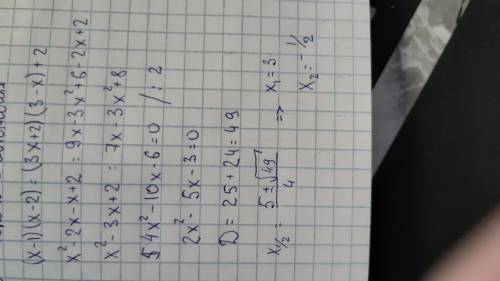 (x-1)(x-2) = (3x+2)(3-x)+2
x²-2x-x+2 = 9x-3x²+6-2x+2
x²-3x+2 = 7x-3x²+8
4x²-10x-6=0 /:2
2x²-5x-3=0
D = 25+24=49
x1/2 = 5±√49/4 => x₁=3
x₂=-1/2